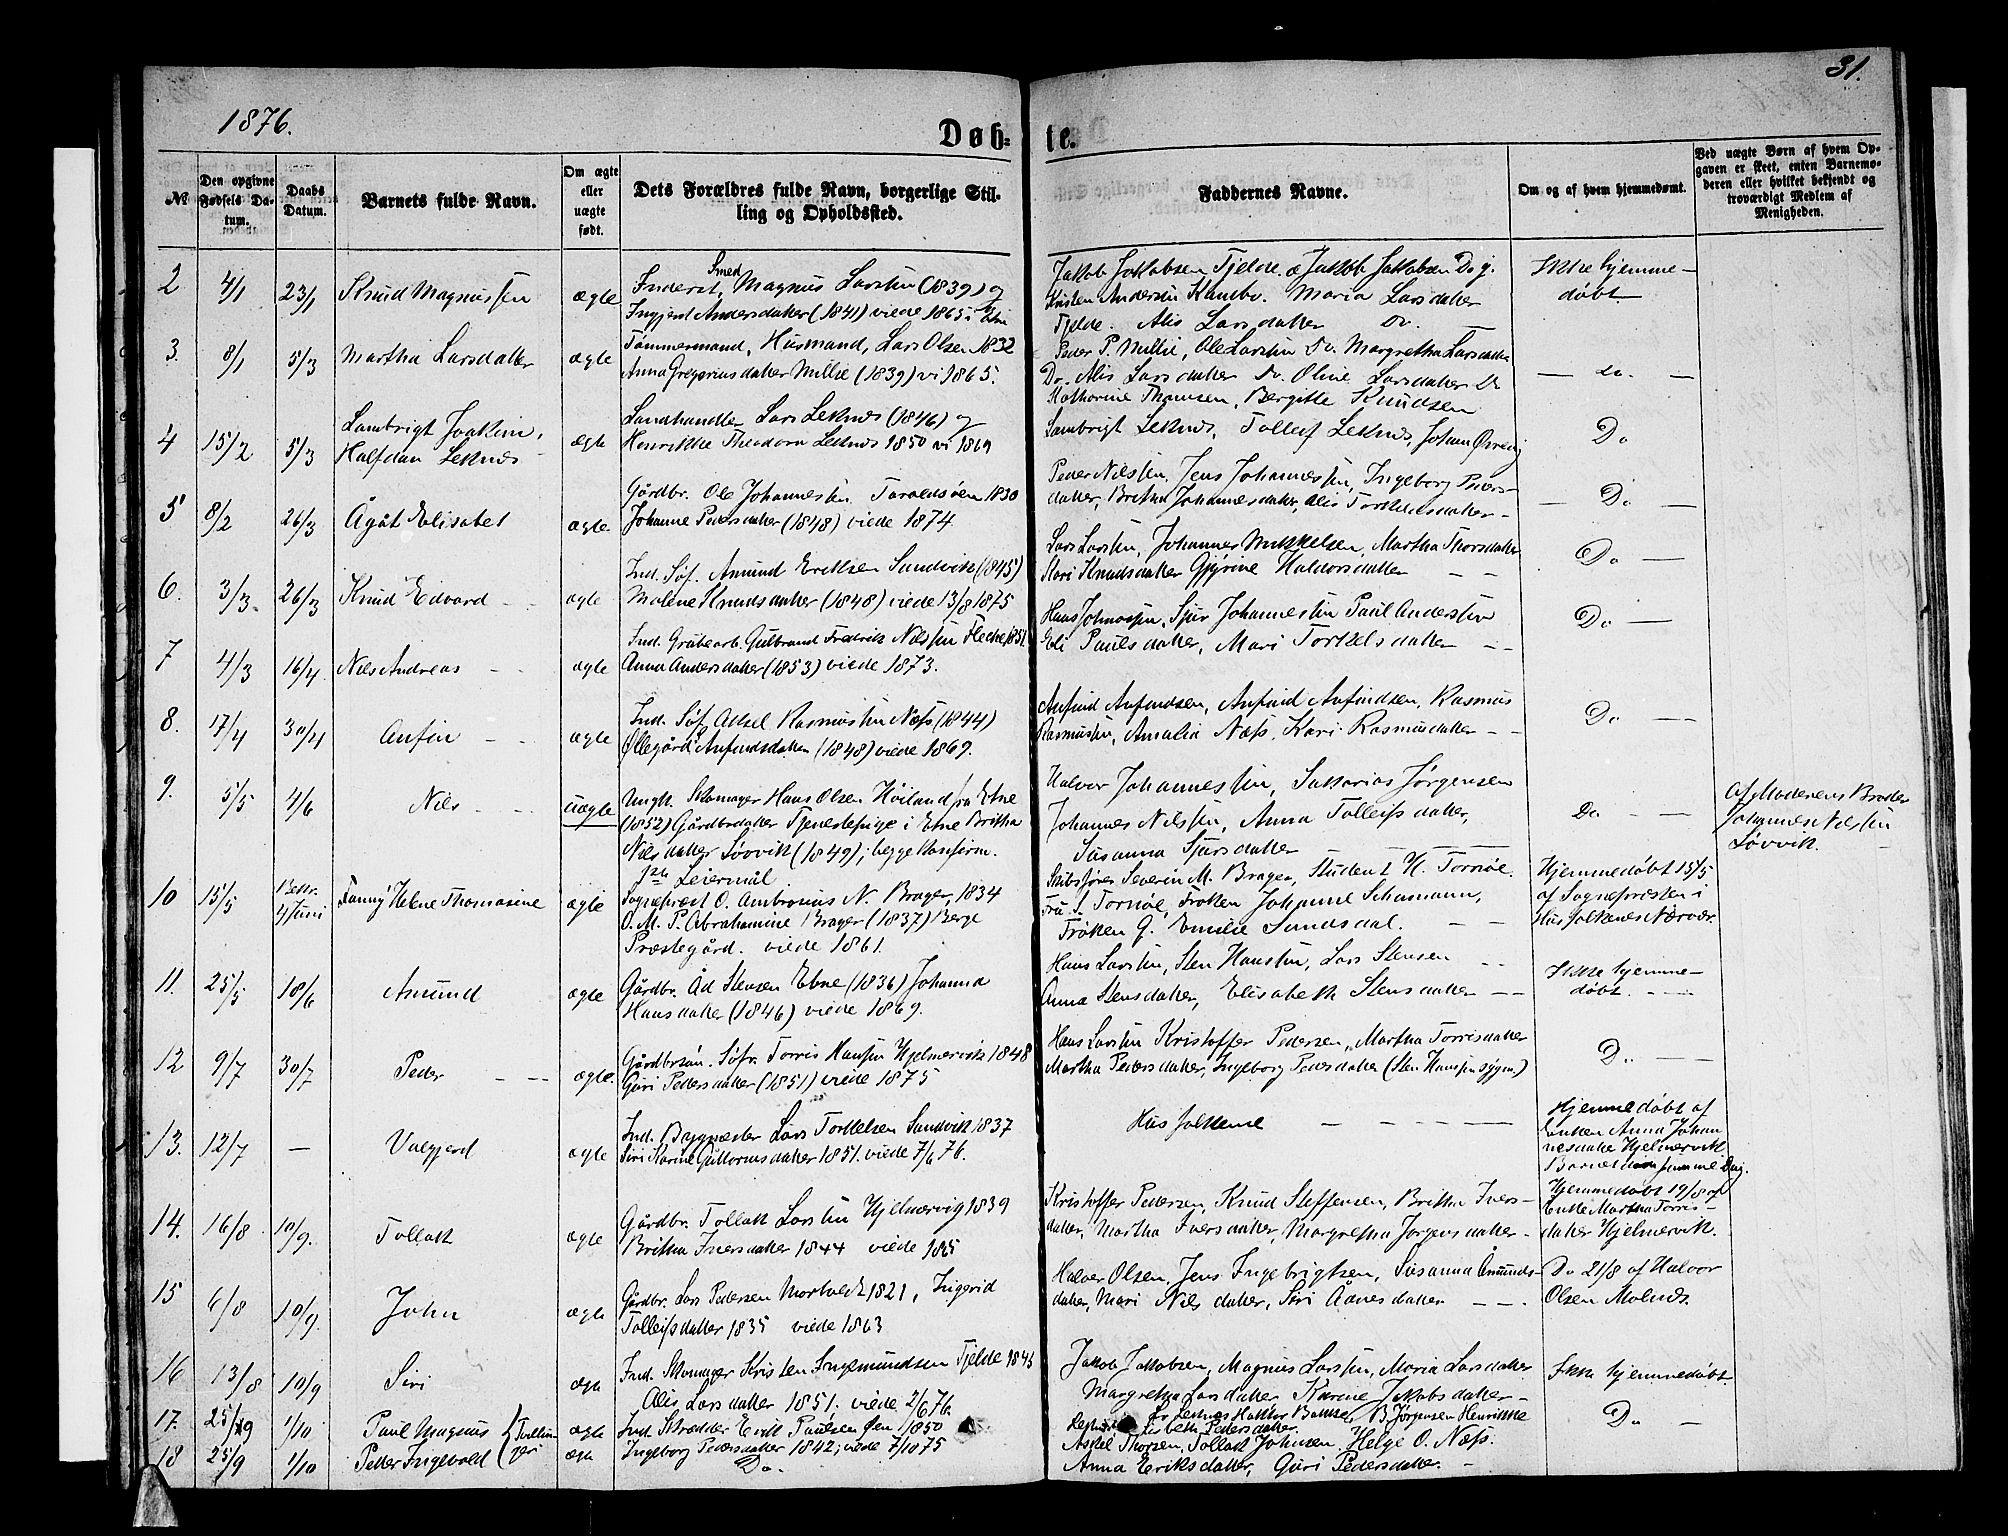 1876.
31.
Døb-
te.
№
Den opgivne Fødsels Da-tum.
Daabs Datum.
Barnets fulde Navn.
Om ægte eller uægte født.
Dets Forældres fulde Navn, borgerlige Stil-
ling og Opholdssted.
Faddernes Navne.
Om og af hvem hjemmedømt.
Ved uægte Børn af hvem Op-
gaven er skeet, enten Barnemo-
deren eller hvilket bekjendt og
troværdigt Medlem af
Menigheden.
2 4/1 23/1 Knud Magnussen ægte
Inderst, Smed Magnus Larsen (1839) og
Ingjerd Andersdatter (1841) viede 1865. Etne
Jakob Jakobsen Tjelde, Jakob Jakobsen Do
Kristen Andersen Kambo. Maria Larsdatter
Tjelde. Alis Larsdatter Do.
Ikke hjemme-
døbt
3. 8/1 5/3 Martha Larsdatter ægte
Tømmermand, Husmand, Lars Olsen 1832
Anna Gregoriusdatter Millie (1839) vi 1865.
Peder P. Millie, Ole Larsen Do. Margretha Larsdatter
Do. Alis Larsdatter Do. Oline Larsdatter Do
Katharine Thomsen, Bergitte Knudsen
— do. —
4 15/2 5/3 Lambrigt Joakim
Halfdan Leknes ægte
Landhandler Lars Leknes (1846) og
Henrikke Theodora Leknes 1850 vi 1869
Lambrigt Leknes, Tolleif Leknes, Johan
Do
5 8/2 26/3 Ågåt Elisabet ægte
Gårdbr. Ole Johannesen Taraldsøen 1830
Johanne Pedersdatter (1848) viede 1874.
Peder Nilsen, Jens Johannesen, Ingeborg Peders-
datter, Britha Johannesdatter, Alis Torkelsdatter
— Do —
6. 3/3 26/3 Knud Edvard ægte
Ind. Søf. Amund Eriksen Sandvik (1845)
Malene Knudsdatter (1848) viede 13/8 1875
Lars Larsen, Johannes Mikkelsen, Martha Thorsdatter
Kari Knudsdatter Gjyrine Haldorsdatter
Do —
7 4/3 16/4 Nils Andreas ægte
Ind. Grubearb. Gulbrand Fredrik Nilsen Flecke 1851
Anna Andersdatter (1853) viede 1873.
Hans Johnossen, Sjur Johannesen Paul Andersen
Eli Paulsdatter, Mari Torkelsdatter
Do —
8. 17/4 30/4 Anfin ægte
Ind. Søf. Aksel Rasmussen Næss (1844)
Ollegård Anfindsdatter (1848) viede 1869.
Anfind Anfindsen, Anfind Anfindsen, Rasmus
Rasmussen, Amalia Næss, Kari Rasmusdatter
Do —
9. 5/5 4/6 Nils uægte
Ungk. Skomager Hans Olsen Høiland fra Etne
(1852) Gårdbrdatter Tjenestepige i Etne Britha
Nilsdatter Løvvik (1849); begge konfirm.
1ste Leiermål
Halvor Johannesen, Sakarias Jørgensen
Johannes Nilsen, Anna Tolleifsdatter,
Susanna Sjursdatter
Do —
Af Moderens Broder
Johannes Nilsen
Løvvik.
10 15/5 Bekr. 4 Juni Fanny Helene Thomasine ægte
Sognepræst O. Ambrosius N. Brager, 1834
O. M. P. Abrahamine Brager (1837) Berge
Præstegård. viede 1861.
Skibsfører Severin M. Brager, Student H. Tornøe.
Fru S. Tornøe, Frøken Johanne Schumann,
Frøken G. Emilie Sundsdal.
Hjemmedøbt 15/5
af Sognepræsten i
Husfolkenes Nærvær.
11. 25/5 18/6 Amund ægte
Gårdbr. Åd Stensen Ebne (1836) Johanna
Hansdatter (1846) viede 1869.
Hans Larsen, Sten Hansen, Lars Stensen
Anna Stensdatter, Elisabeth Stensdatter
Ikke hjemme-
døbt.
12 9/7 30/7 Peder ægte.
Gårdbrsøn. Søfr. Torris Hansen Hjelmervik 1848
Guri Pedersdatter (1851) viede 1875
Hans Larsen Kristoffer Pedersen, Martha Torrisdatter
Martha Pedersdatter, Ingeborg Pedersdatter (Sten Hansen sygm.)
Do —
13. 12/7 — Valgjerd ægte
Ind. Lars Torkelsen Sandvik 1837
Siri Karine Guttormsdatter 1851. viede 7/6 76.
Husfolkene
Hjemmedøbt af
Enken Anna Johan-
nesdatter Hjelmervik
Barnet samme Dag.
14. 16/8 10/9. Tollak ægte
Gårdbr. Tollak Larsen Hjelmervig 1839
Britha Iversdatter 1844 viede 1865
Kristoffer Pedersen, Knud Steffensen, Britha Ivers-
datter, Martha Iversdatter, Margretha Jørgensdatter
Hjemmedøbt 19/8 af
Enke Martha Torris-
datter Hjelmervik.
15 6/8 10/9. John ægte
Gårdbr. Lars Pedersen 1821, Ingerid
Tolleifsdatter 1835 viede 1863
Halvor Olsen, Jens Ingebrigtsen, Susanna Amunds-
datter, Mari Nilsdatter, Siri Ådnesdatter
Do 21/8 af Halvor
Olsen Molnes.
16 13/8 10/9 Siri ægte
Ind. Skomager Kristen Ingemundsen Tjelde 1845
Alis Larsdatter 1851. viede 2/6 76.
Jakob Jakobsen, Magnus Larsen, Maria Larsdatter
Margretha Larsdatter Karine Jakobsdatter
Ikke hjemmedøbt.
17. 25/9 1/10 Paul Magnus } Tvillin- ægte
Ind. Skrædder Erik Paulsen Øen 1850
Ingeborg Pedersdatter 1842; viede 7/10 75
B. Jørgensen Henrikke
Lisbeth Pedersdatter.
Do —
18 25/9 1/10 Petter Ingevald } ger ægte
Do.
Askel Thorsen, Tollak Johnsen, Helge O. Næss.
Anna Eriksdatter, Guri Pedersdatter.